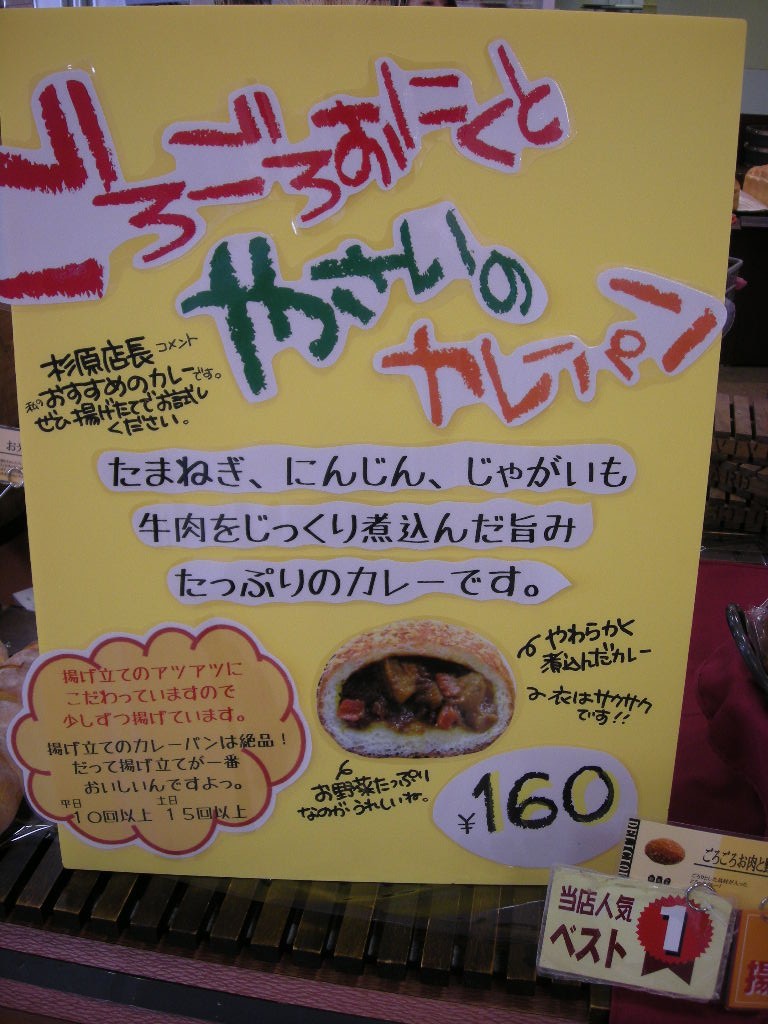 ごろごろおにくと
やさいの
カレーパン
杉原店長コメント
私のおすすめのカレーです。
ぜひ揚げたてでお試し
ください。
たまねぎ、にんじん、じゃがいも
牛肉をじっくり煮込んだ旨み
たっぷりのカレーです。
揚げ立てのアツアツに
こだわっていますので
少しずつ揚げています。
揚げ立てのカレーパンは絶品！
だって揚げ立てが一番
おいしいんですよっ。
平日 10回以上 土日 15回以上
やわらかく
煮込んだカレー
衣はサクサク
です!!
お野菜たっぷり
なのが・うれしいね。
¥160
ごろごろお肉と
当店人気
ベスト 1
揚